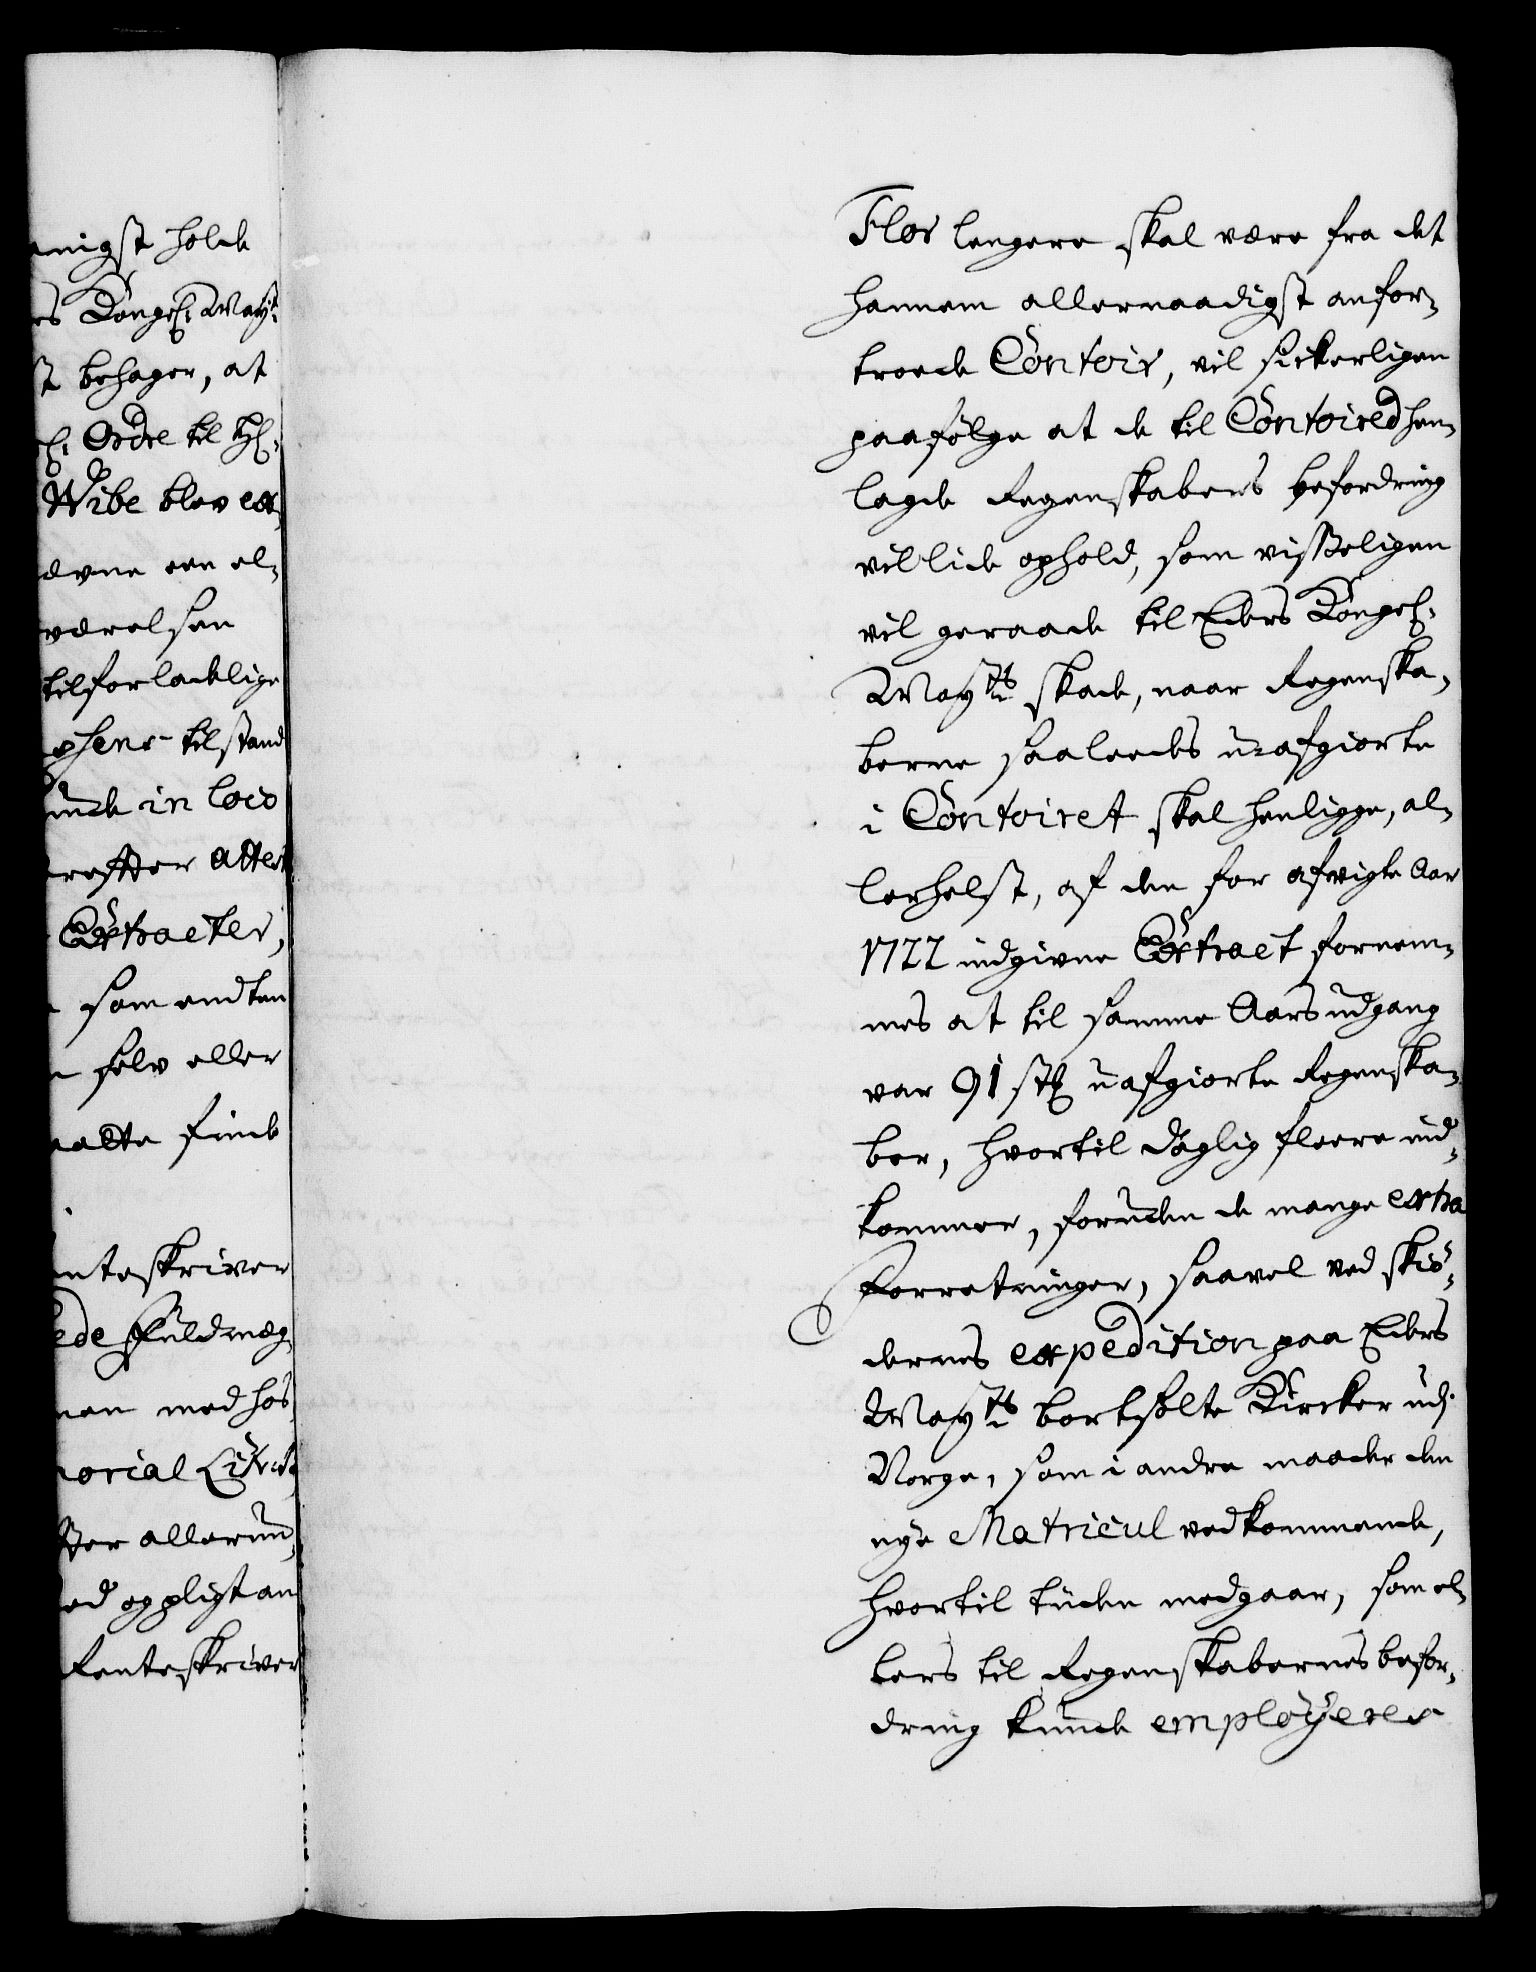 anigst holde
es Kongel: May:t
st behager, at
l: Ordre til Hl:
Wibe blev ex-
ævne een el-
værelsen
tilforladelige
phens tilstand
unde in loco
reffter attest
Extracter,
som endten
selv eller
aatte finde
enteskriver
ede Fuldmæg-
nen med hos
morial Litr:
ser allerun-
ed og pligt an
Renteskriver
Flor lengere skal være fra det
hannem allernaadigst anfor-
troede Contoir, vil sickerligen
paafølge at de til Contoired hen-
lagde Regenskabers befordring
vil lide ophold, som visseligen
vil geraade til Eders Kongel:
May:ts skade, naar Regenska-
berne saaleedes u-afgiorte
i Contoiret skal henligge, al-
lerhelst, af den for afvigte Aar
1722 indgivne Extract fornem-
mes at til samme Aars udgang
var 91 stk uafgiorte Regenska-
ber, hvortil daglig fleere ind-
kommer, foruden de mange extra
Forretninger, saavel ved skiø-
dernes expedition paa Eders
May:ts bortsolte Kircker udj
Norge, som i andre maader den
nye Matricul vedkommende,
hvortil tiiden medgaar, som el-
lers til Regenskabernes befor-
dring kunde employeres